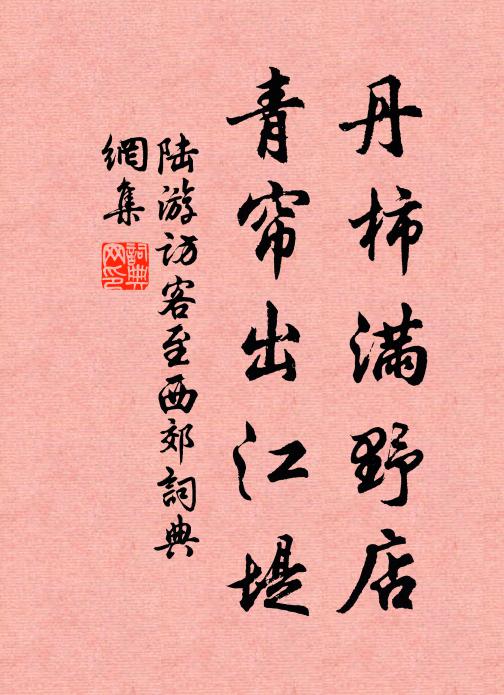 丹柿满野店
青帘出江堤
陆游访客至西郊詞典
網集
詞典
网印